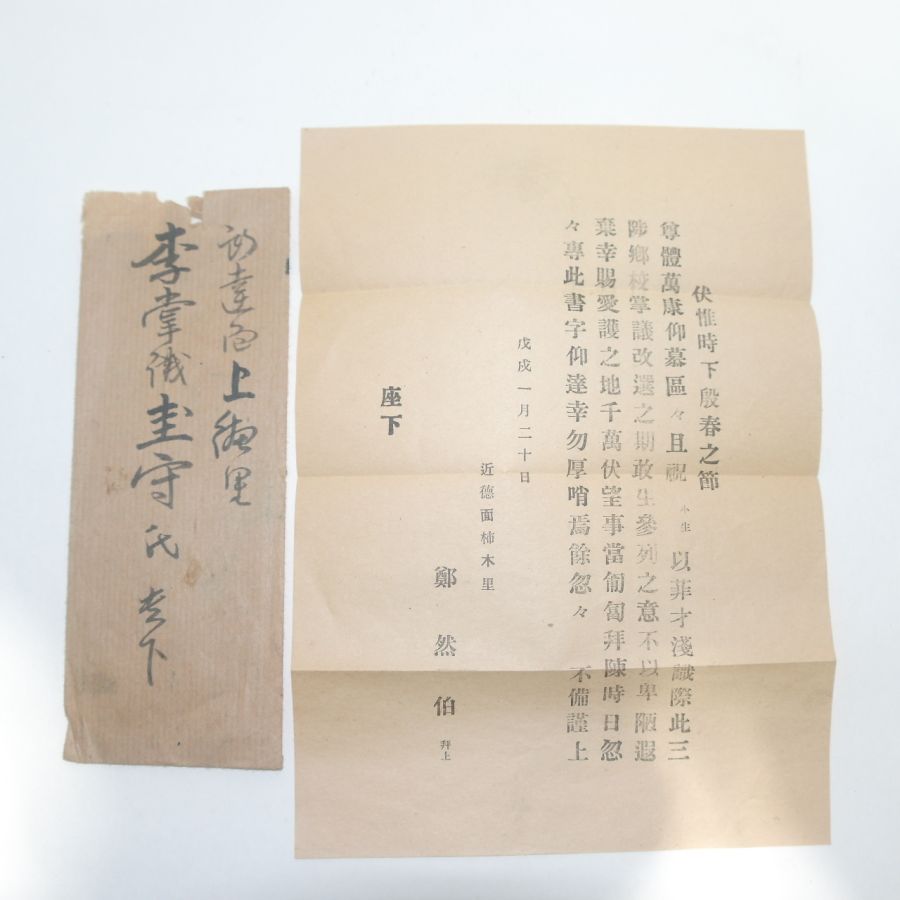 伏惟時下殷春之節
尊體萬康仰慕區々且祝 小生 以菲才淺識際此三
陟鄉校掌議改選之期敢生參列之意不以卑陋遐
棄幸賜愛護之地千萬伏望事當匍匐拜陳時日忽
々專此書字仰達幸勿厚哨焉餘忽々 不備謹上
戊戌一月二十日
近德面柿木里
鄭然伯 拜上
座下
上 里
李掌議圭守氏 座下